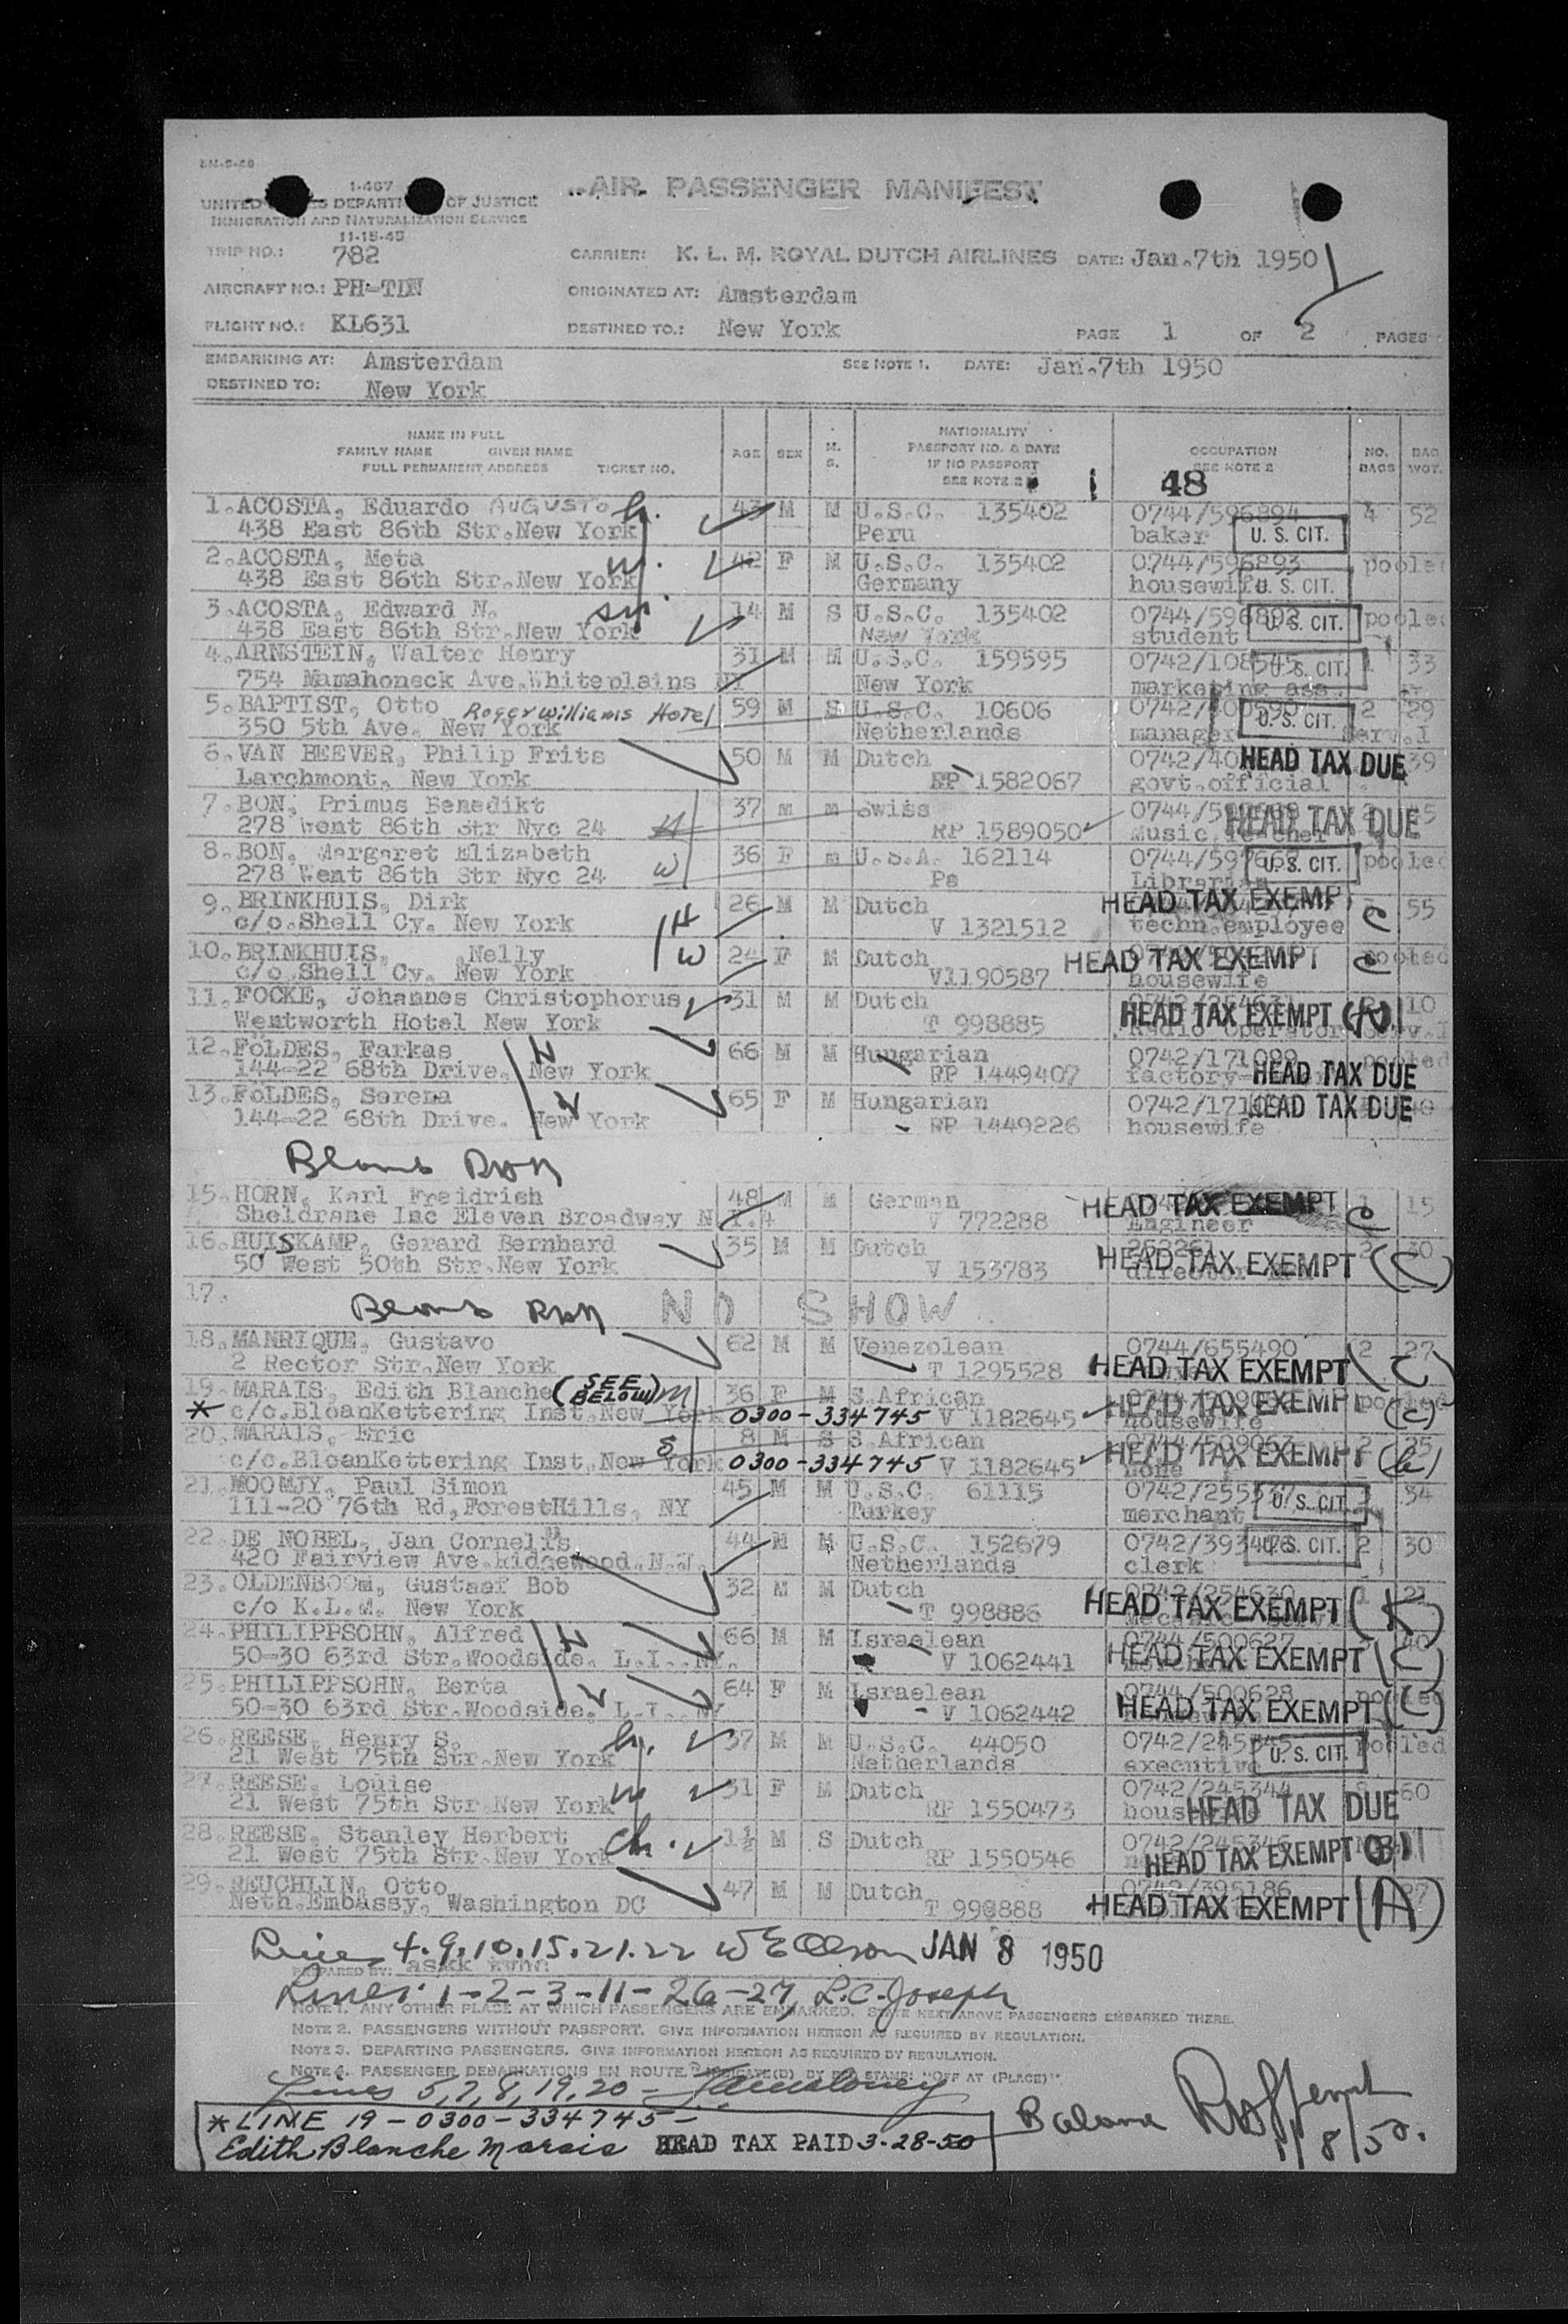 1-467
AIR PASSENGER MANIFEST
OF JUSTICE
IMMIGRATION AND NATURALIZATION SERVICE
11-15-45
TRIP NO.: 782 CARRIER: K. L. M. ROYAL DUTCH AIRLINES DATE: Jan.7th 1950
AIRCRAFT NO.: PH-TDN ORIGINATED AT: Amsterdam
FLIGHT NO.: KL631 DESTINED TO.: New York PAGE 1 OF 2 PAGES
EMBARKING AT: Amsterdam SEE NOTE 1. DATE: Jan.7th 1950
DESTINED TO: New York
NAME IN FULL
FAMILY NAME GIVEN NAME
FULL PERMANENT ADDRESS TICKET NO.
AGE SEX M. S.
NATIONALITY
PASSPORT NO. & DATE
IF NO PASSPORT
SEE NOTE 2
OCCUPATION
SEE NOTE 2
48
NO. BAGS BAG WGT.
1. ACOSTA, Eduardo AUGUSTO h. 43 M M U.S.C. 135402 0744/596894 4 52
438 East 86th Str.New York Peru baker U. S. CIT.
2. ACOSTA, Meta w. 42 F M U.S.C. 135402 0744/596893 pooled
438 East 86th Str.New York Germany housewife U. S. CIT.
3. ACOSTA, Edward N. sn. 14 M S U.S.C. 135402 0744/596892 pooled
438 East 86th Str.New York New York student U. S. CIT.
4. ARNSTEIN, Walter Henry 31 M M U.S.C. 159595 0742/108545 1 33
754 Mamahoneck Ave.Whiteplains NY New York marketing ass. U. S. CIT.
5. BAPTIST, Otto Roger Williams Hotel 59 M S U.S.C. 10606 0742/400590 2 29
350 5th Ave. New York Netherlands manager U. S. CIT. Serv.1
6. VAN BEEVER, Philip Frits 50 M M Dutch 0742/40 HEAD TAX DUE 39
Larchmont, New York RP 1582067 govt.official
7. BON, Primus Benedikt 37 m m Swiss 0744/59 HEAD TAX DUE
278 West 86th Str Nyc 24 H RP 1589050 Music Teacher
8. BON, Margaret Elizabeth 36 F m U.S.A. 162114 0744/597667 pooled
278 West 86th Str Nyc 24 W Pa Librarian U. S. CIT.
9. BRINKHUIS, Dirk 26 M M Dutch HEAD TAX EXEMPT 55
c/o.Shell Cy. New York H V 1321512 techn.employee C
10. BRINKHUIS, Nelly W 24 F M Dutch HEAD TAX EXEMPT C pooled
c/o Shell Cy. New York V1190587 housewife
11. FOCKE, Johannes Christophorus 31 M M Dutch 10
Wentworth Hotel New York T 998885 HEAD TAX EXEMPT radio operator
12. FöLDES, Farkas H 66 M M Hungarian 0742/171099 pooled
144-22 68th Drive. New York RP 1449407 factory HEAD TAX DUE
13. FöLDES, Serena W 65 F M Hungarian 0742/171 HEAD TAX DUE 40
144-22 68th Drive. New York RP 1449226 housewife
15. HORN, Karl Freidrich 48 M M German HEAD TAX EXEMPT 1 15
Sheldrane Inc Eleven Broadway N.Y.4 V 772288 Engineer C
16. HUISKAMP, Gerard Bernhard 35 M M Dutch 2 30
50 West 50th Str.New York V 153783 HEAD TAX EXEMPT (C)
17. NO SHOW
18. MANRIQUE, Gustavo 62 M M Venezolean 0744/655490 2 27
2 Rector Str.New York T 1295528 HEAD TAX EXEMPT (C)
19. MARAIS, Edith Blanche (SEE BELOW) m 36 F M S.African HEAD TAX EXEMPT pooled
* c/o.BloanKettering Inst.New York 0300-334745 V 1182645 housewife (C)
20. MARAIS, Eric S 8 M S S.African 0744/509063 2 25
c/o.BloanKettering Inst.New York 0300-334745 V 1182645 none HEAD TAX EXEMPT
21. MOOMJY, Paul Simon 45 M M U.S.C. 61115 0742/255537 34
111-20 76th Rd,ForestHills, NY Turkey merchant U. S. CIT.
22. DE NOBEL, Jan Cornelis 44 M M U.S.C. 152679 0742/393406 2 30
420 Fairview Ave.Ridgewood.N.J. Netherlands clerk U. S. CIT.
23. OLDENBOOm, Gustaaf Bob 32 M M Dutch 0742/254630 1 21
c/o K.L.M. New York T 998886 HEAD TAX EXEMPT (K)
24. PHILIPPSOHN, Alfred H 66 M M Israelean 0744/500627 40
50-30 63rd Str.Woodside. L.I. NY. V 1062441 HEAD TAX EXEMPT (C)
25. PHILIPPSOHN, Berta W 64 F M Israelean 0744/500628 pooled
50-30 63rd Str.Woodside. L.I. NY V 1062442 HEAD TAX EXEMPT (C)
26. REESE, Henry S. h. 37 M M U.S.C. 44050 0742/245345 pooled
21 West 75th Str.New York Netherlands executive U. S. CIT.
27. REESE, Louise w 31 F M Dutch 0742/245344 60
21 West 75th Str.New York RP 1550473 HEAD TAX DUE
28. REESE, Stanley Herbert ch. 1½ M S Dutch 0742/245346
21 West 75th Str.New York RP 1550546 HEAD TAX EXEMPT
29. REUCHLIN, Otto 47 M M Dutch 0742/395186
Neth.Embassy, Washington DC HEAD TAX EXEMPT (A)
Lines 4.9.10.15.21.22 W E Olson JAN 8 1950
PREPARED BY:
Lines 1-2-3-11-26-27, L.C. Joseph
NOTE 1. ANY OTHER PLACE AT WHICH PASSENGERS ARE EMBARKED. STATE NEXT ABOVE PASSENGERS EMBARKED THERE.
NOTE 2. PASSENGERS WITHOUT PASSPORT. GIVE INFORMATION HEREON AS REQUIRED BY REGULATION.
NOTE 3. DEPARTING PASSENGERS. GIVE INFORMATION HEREON AS REQUIRED BY REGULATION.
NOTE 4. PASSENGER DEBARKATIONS EN ROUTE INDICATE(D) BY STAMP: "OFF AT (PLACE)".
Lines 5,7,8,19,20 -
* LINE 19 - 0300-334745 -
Edith Blanche Marais HEAD TAX PAID 3-28-50
Balance
1/8/50.